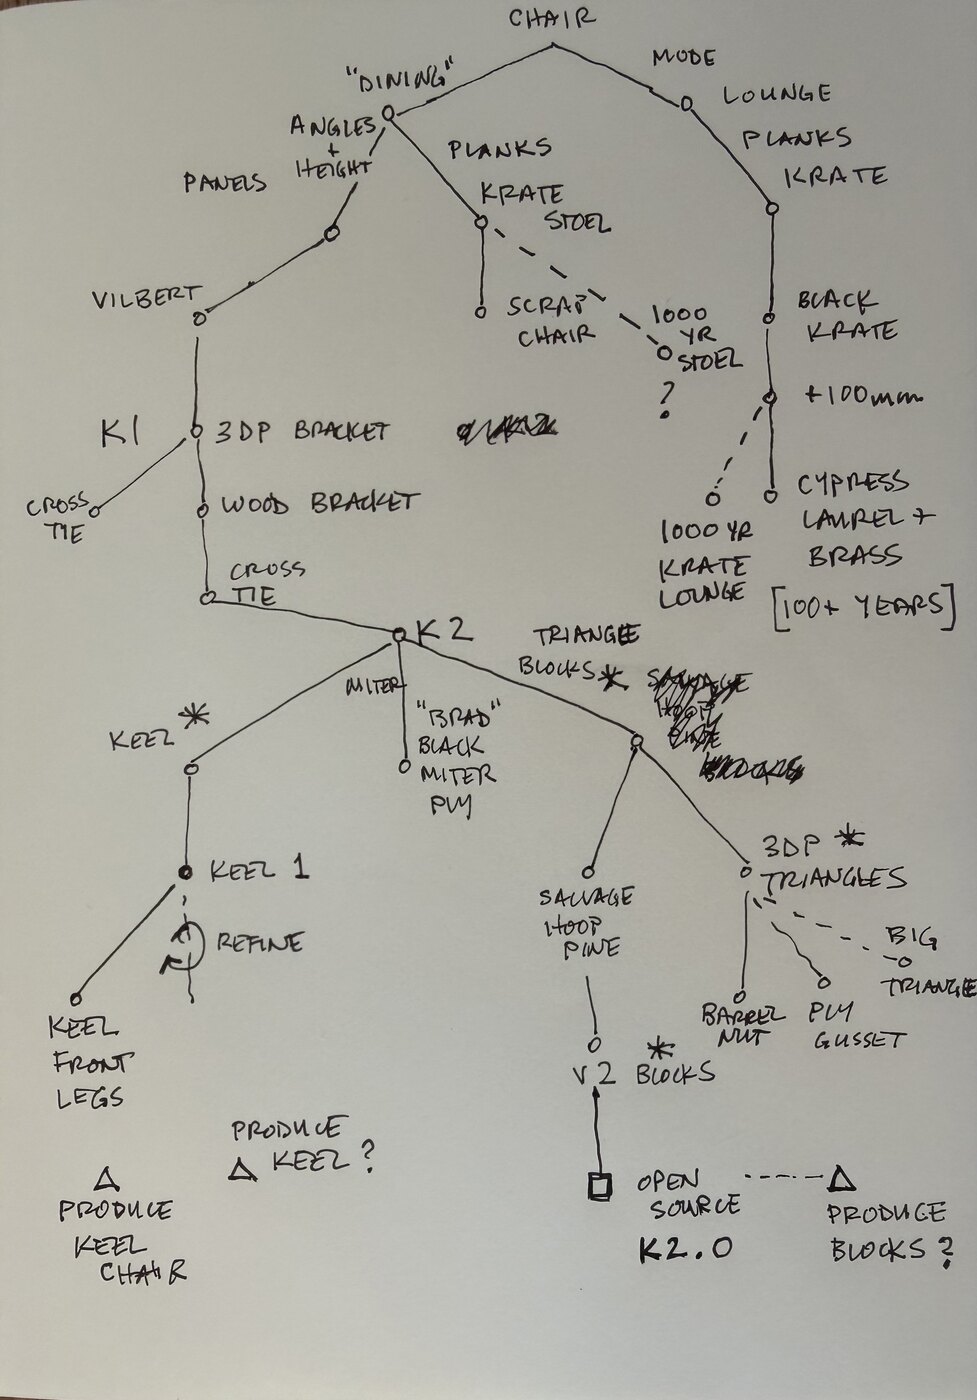 CHAIR
MODE
"DINING"
LOUNGE
ANGLES
+
HEIGHT
PLANKS
KRATE
STOEL
PLANKS
KRATE
PANELS
VILBERT
SCRAP
CHAIR
1000
YR
STOEL
?
BLACK
KRATE
+100mm
K1
3DP BRACKET
CROSS
TIE
WOOD BRACKET
CYPRESS
LAUREL +
BRASS
[100+ YEARS]
1000 YR
KRATE
LOUNGE
CROSS
TIE
K2
TRIANGLE
BLOCKS *
SALVAGE
HOOP
PINE
BLOCKS
MITER
KEEL *
"BRAD"
BLACK
MITER
PLY
KEEL 1
REFINE
SALVAGE
HOOP
PINE
3DP *
TRIANGLES
BIG
TRIANGLE
BARREL
NUT
PLY
GUSSET
KEEL
FRONT
LEGS
V2 * BLOCKS
PRODUCE
KEEL ?
PRODUCE
KEEL
CHAIR
OPEN
SOURCE
K2.0
PRODUCE
BLOCKS ?